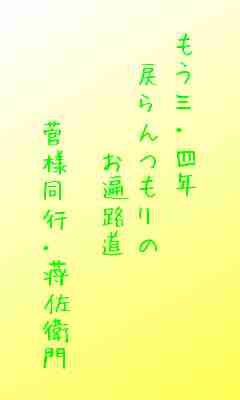 もう三・四年
戻らんつもりの
お遍路道
菅様同行・蒋佐衛門